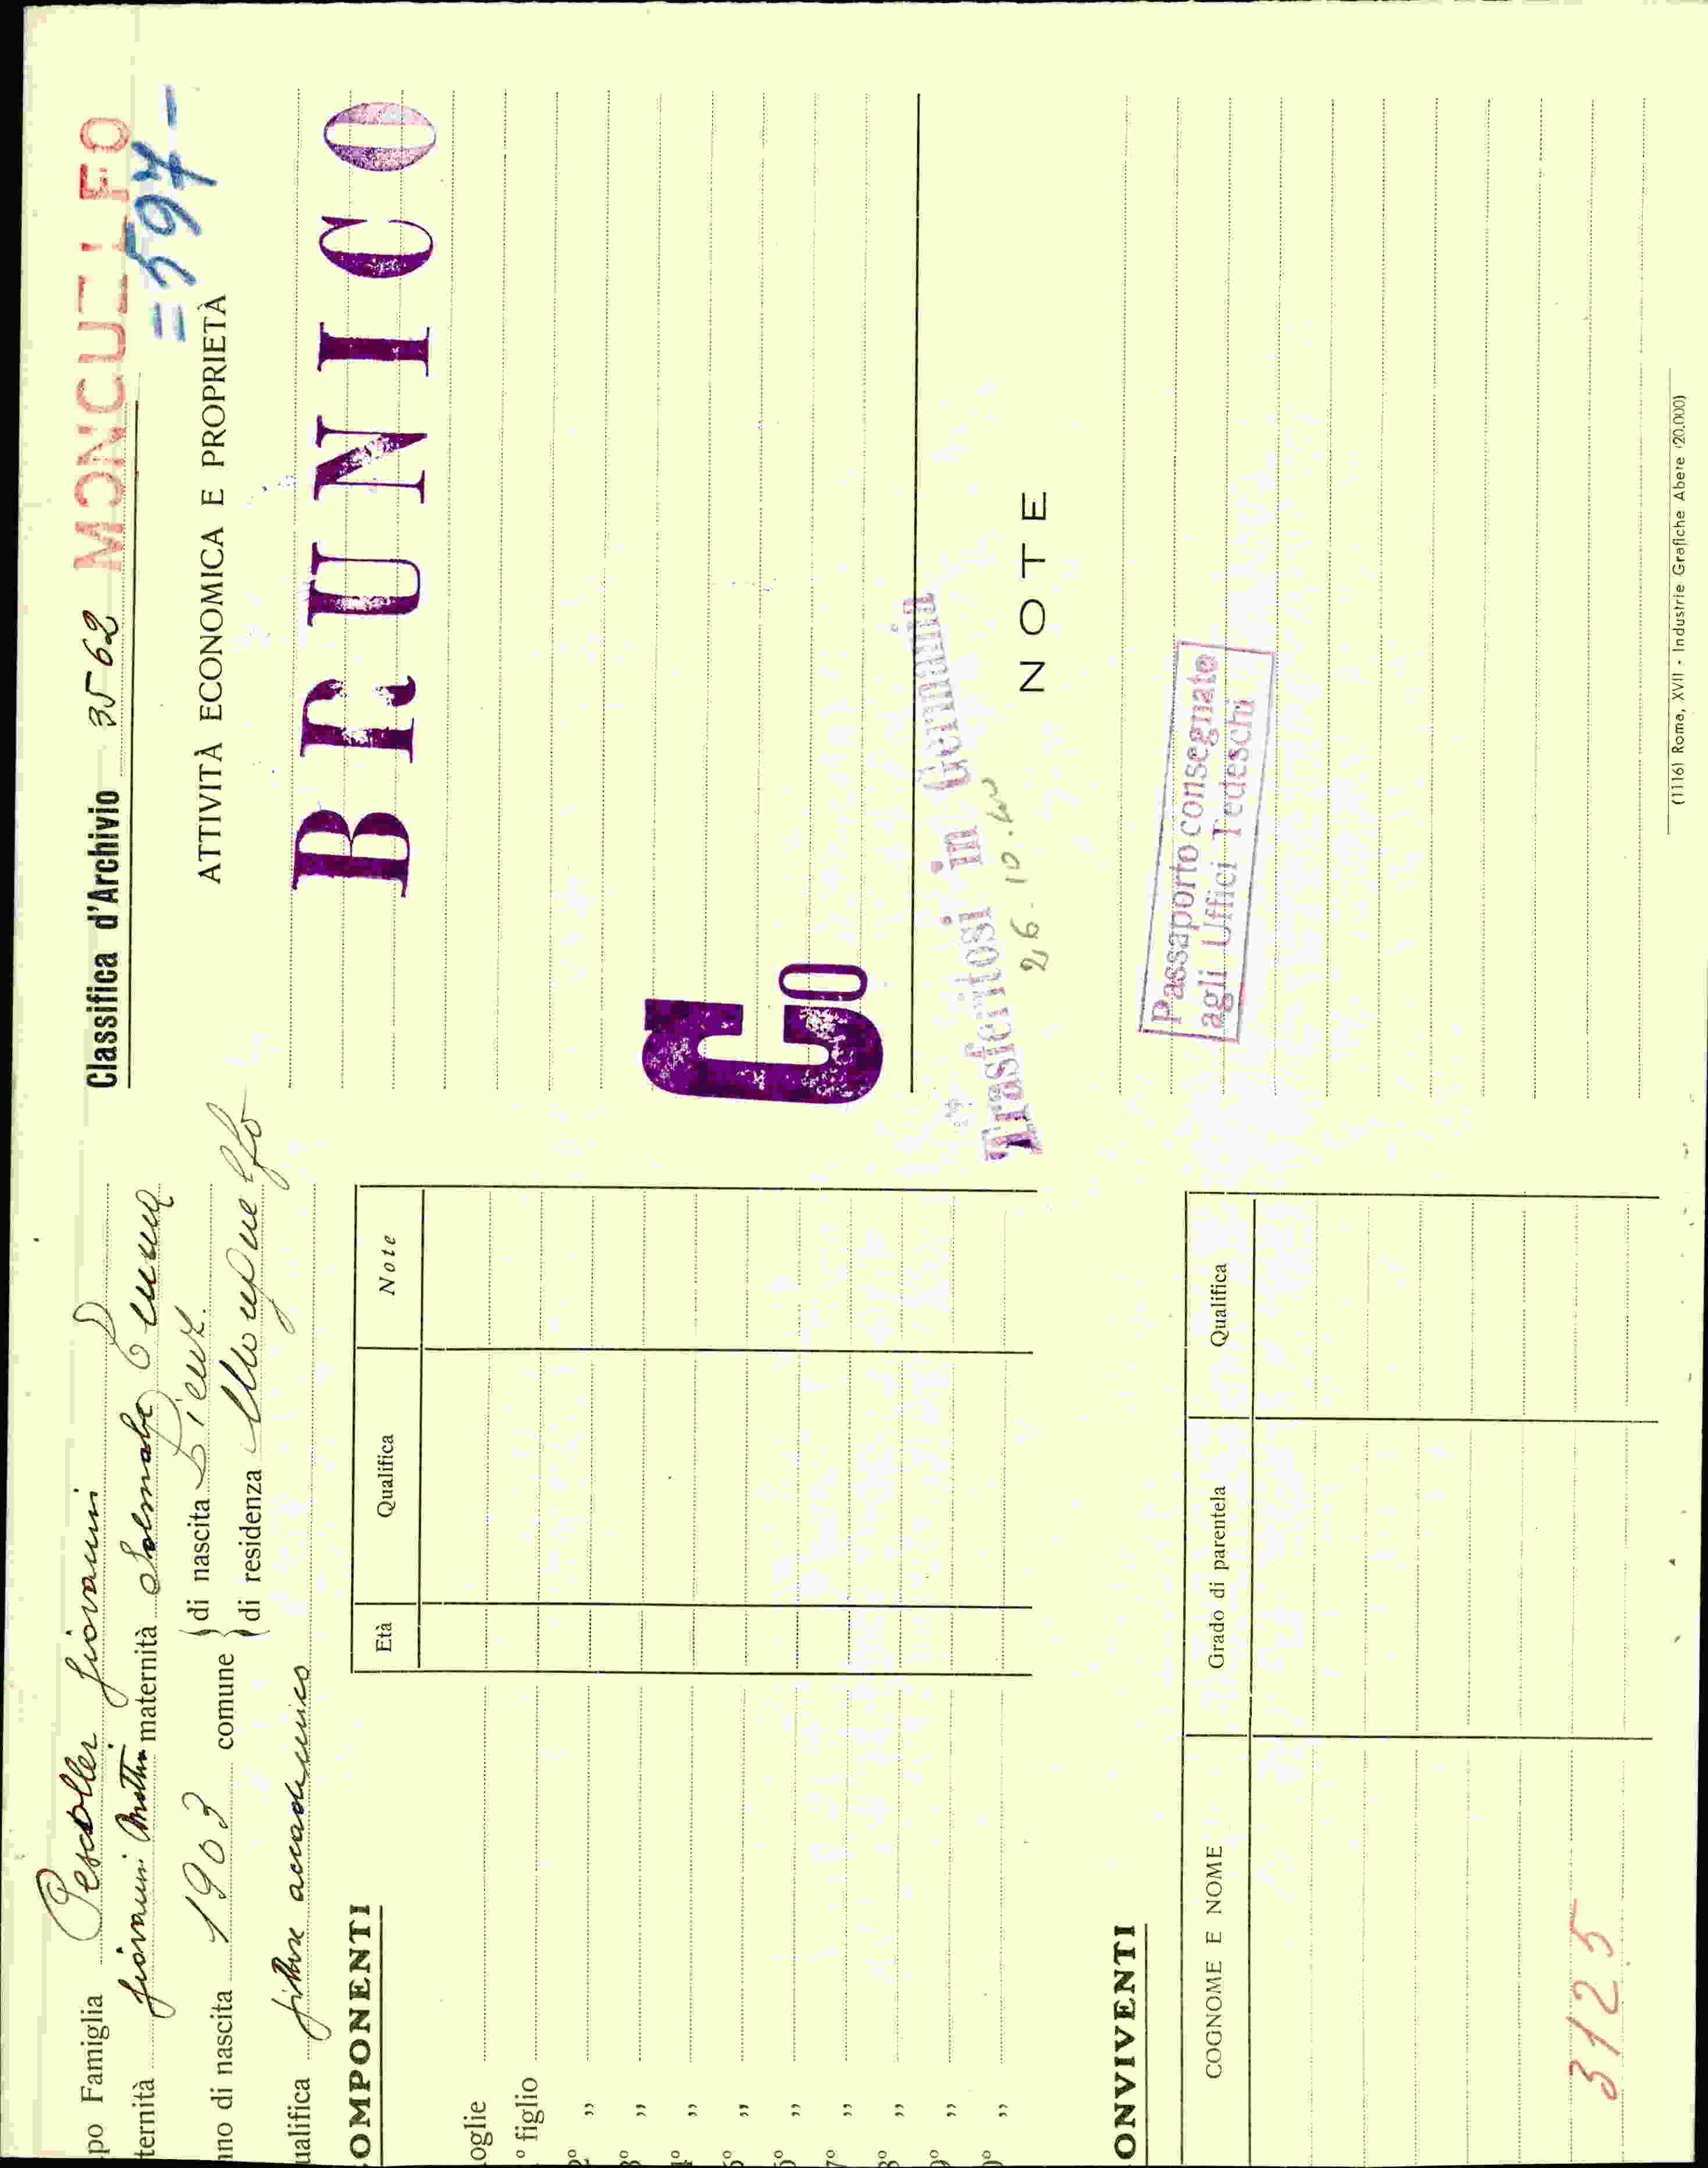 po Famiglia Pescoller Giovanni
ternità Giovanni maternità Emma
nno di nascita 1903 comune
di nascita Lienz.
di residenza Monguelfo
ualifica pittore accademico
OMPONENTI
Età Qualifica Note
oglie
° figlio
2° „
3 „
4° „
5° „
6° „
7° „
8° „
9° „
0° „
ONVIVENTI
COGNOME E NOME Grado di parentela Qualifica
3125
Classifica d'Archivio 3562 MONGUELFO
=597-
ATTIVITÀ ECONOMICA E PROPRIETÀ
BRUNICO
Co
Trasferitosi in Germania
26.10.40
NOTE
Passaporto consegnato
agli Uffici Tedeschi
(1116) Roma, XVII - Industrie Grafiche Abete (20.000)